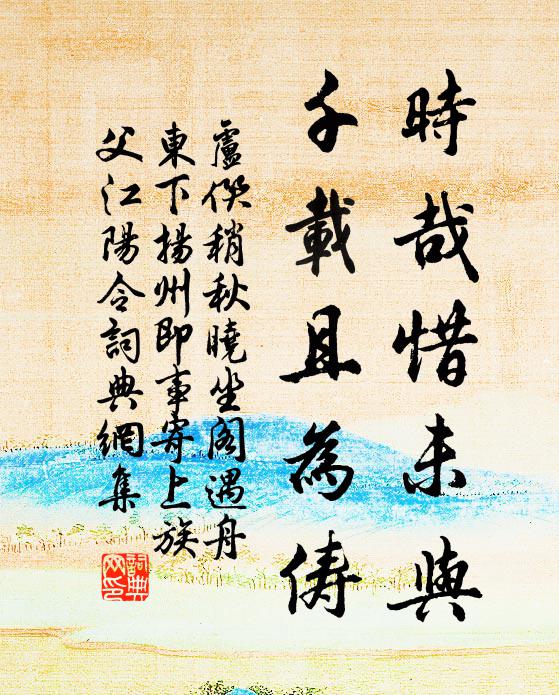 時哉惜未與
千載且為儔
盧僎稍秋曉坐閣遇舟
東下揚州即事寄上族
父江陽令詞典網集
詞典
网印